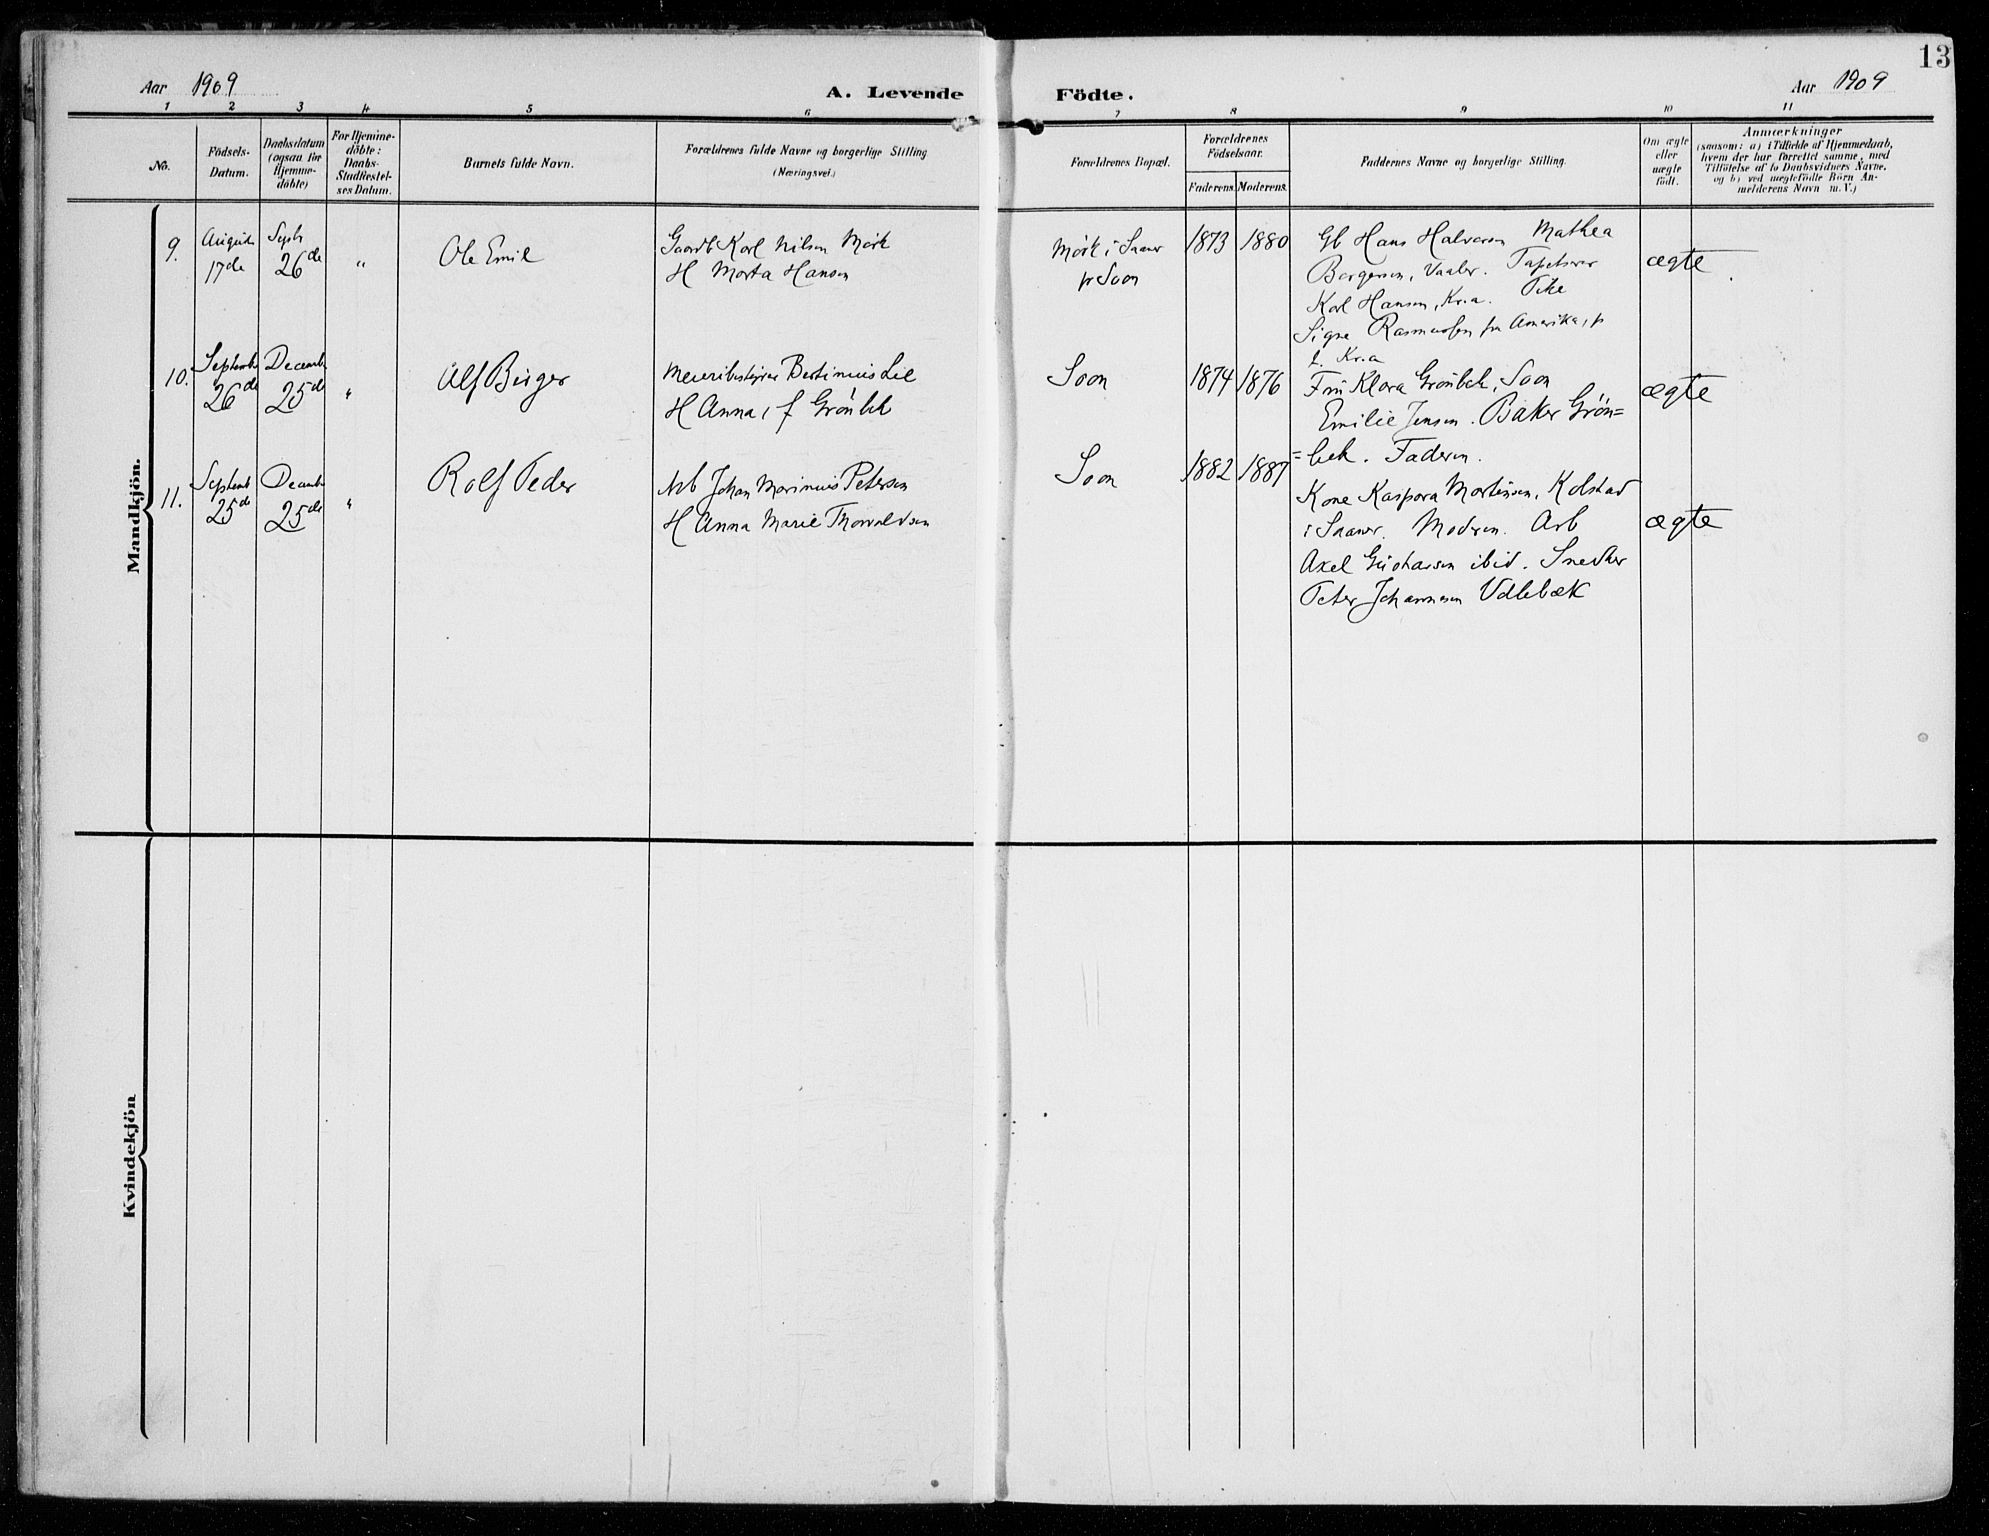 13
Aar 1909
A. Levende Födte.
Aar 1909
1 2 3 4 5 6 7 8 9 10 11
No.
Födsels-
Datum.
Daabsdatum
(ogsaa for
Hjemme-
döbte)
For Hjemme-
döbte:
Daabs-
Stadfæstel-
ses Datum.
Barnets fulde Navn.
Forældrenes fulde Navne og borgerlige Stilling
(Næringsvei.)
Forældrenes Bopæl.
Forældrenes
Födselsaar.
Faderens. Moderens.
Faddernes Navne og borgerlige Stilling.
Om ægte
eller
uægte
födt.
Anmærkninger
(saasom: a) i Tilfælde af Hjemmedaab,
hvem der har forrettet samme, med
Tilföielse af to Daabsvidners Navne.
og b) ved uægtefödte Börn An-
melderens Navn m. V.)
Mandkjön.
9.
August
17de
Septb
26de
"
Ole Emil
Gaardb Karl Nilsen Mørk
H Marta Hansen
Mørk i Saaner
pr Soon
1873 1880
Gb Hans Halvorsen Mathea
Borgersen, Vaaler. Tapetserer
Karl Hansen, Kr.a. Pike
Signe Rasmussen fra Amerika, p
t. Kr.a
ægte
10.
Septemb
26de
Decemb
25de
"
Alf Birger
Meieribestyrer Bertinius Lie
H Anna, f Grønbek
Soon
1874 1876
Fru Klara Grønbek, Soon
Emilie Jensen. Baker Grøn=
=bek. Faderen.
ægte
11.
Septemb
25de
Decemb
25de
"
Rolf Peder
Arb Johan Marinius Petersen
H Anna Marie Thorvaldsen
Soon
1882 1887
Kone Kaspara Martinsen, Kolstad
i Saaner. Moderen. Arb
Axel Gustavsen ibid. Snedker
Peter Johannesen Vdlebæk
ægte
Kvindekjön